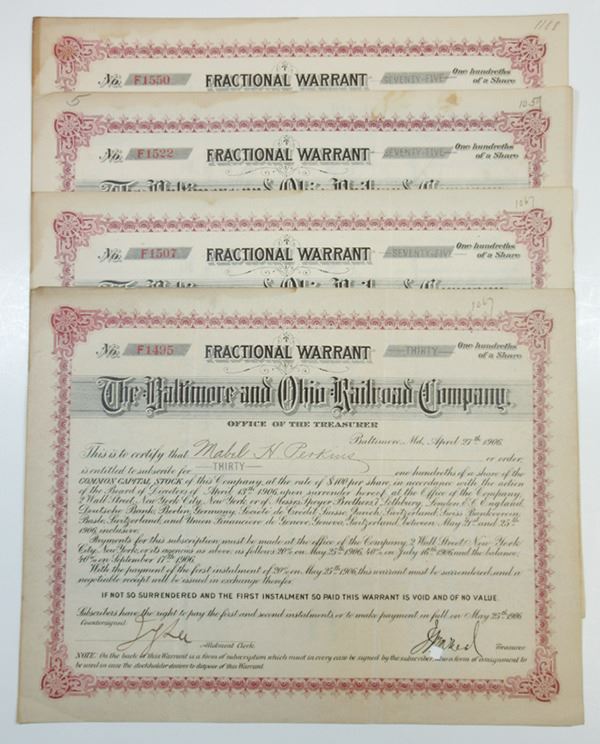 1188
No. F1550 FRACTIONAL WARRANT SEVENTY-FIVE One hundredths of a Share
5
No. F1522 FRACTIONAL WARRANT SEVENTY-FIVE One hundredths of a Share
The Baltimore and Ohio Railroad Company.
1067
No. F1507 FRACTIONAL WARRANT SEVENTY-FIVE One hundredths of a Share
1067
No. F1495 FRACTIONAL WARRANT THIRTY One hundredths of a Share
The Baltimore and Ohio Railroad Company.
OFFICE OF THE TREASURER
Baltimore, Md., April 27th 1906.
This is to certify that Mabel H Perkins or order,
is entitled to subscribe for THIRTY one hundredths of a share of the
COMMON CAPITAL STOCK of this Company, at the rate of $100 per share, in accordance with the action
of the Board of Directors of April 13th 1906, when surrendered at the Office of the Company,
2 Wall Street, New York City, New York, or of Messrs. Speyer Brothers, 7 Lothbury, London E.C. England,
Deutsche Bank, Berlin, Germany, Société de Crédit Suisse, Zurich, Switzerland, Swiss Bankverein,
Basle, Switzerland, and Union Financiere de Geneve, Geneva, Switzerland between May 21st and 25th
1906, inclusive.
Payments for this subscription must be made at the office of the Company, 2 Wall Street, New York
City, New York, or its agencies as above as follows: 20% on May 25th 1906, 40% on July 16th 1906 and the balance,
40% on September 17th 1906.
With the payment of the first instalment of 20% on May 25th 1906, this warrant must be surrendered, and a
negotiable receipt will be issued in exchange therefor.
IF NOT SO SURRENDERED AND THE FIRST INSTALMENT SO PAID THIS WARRANT IS VOID AND OF NO VALUE.
Subscribers have the right to pay the first and second instalments, or to make payment in full, on May 25th 1906
Countersigned
Allotment Clerk. Treasurer
NOTE: On the back of this Warrant is a form of subscription which must in every case be signed by the subscriber, also a form of assignment to
be used in case the stockholder desires to dispose of this Warrant